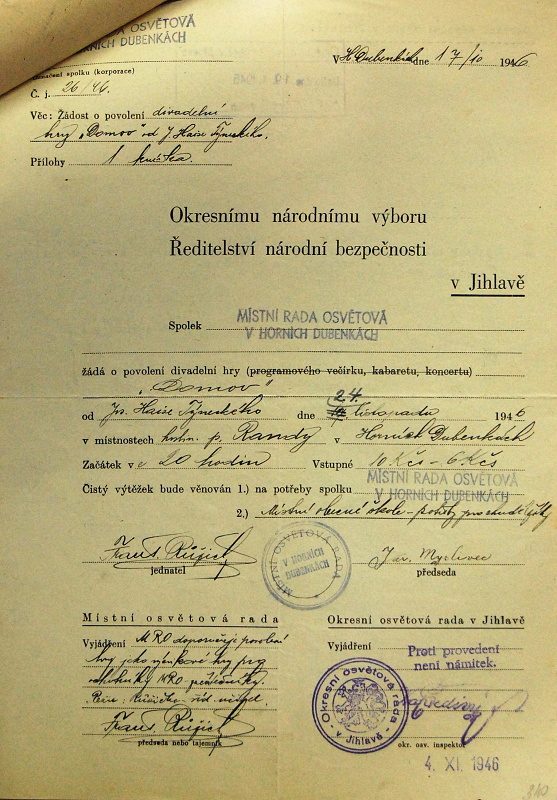 OSVĚTOVÁ
HORNÍCH DUBENKÁCH
Označení spolku (korporace)
Č. j. 26/46.
V H. Dubenkách dne 17/10 1946
Věc: Žádost o povolení divadelní
hry „Domov“ od J. Haise Týneckého.
Přílohy 1 knížka.
Okresnímu národnímu výboru
Ředitelství národní bezpečnosti
v Jihlavě
Spolek MÍSTNÍ RADA OSVĚTOVÁ
V HORNÍCH DUBENKÁCH
žádá o povolení divadelní hry (programového večírku, kabaretu, koncertu)
„Domov“
od Jos. Haise Týneckého dne 24. listopadu 1946
v místnostech hostin. p. Randy v Horních Dubenkách
Začátek v 20 hodin Vstupné 10 Kčs - 6 Kčs
Čistý výtěžek bude věnován 1.) na potřeby spolku MÍSTNÍ RADA OSVĚTOVÁ
V HORNÍCH DUBENKÁCH
2.) Místní obecné škole - potřeby pro chudé
Frant. Růžič
jednatel
MÍSTNÍ OSVĚTOVÁ RADA
V HORNÍCH
DUBENKÁCH
Jar. Myslivec
předseda
Místní osvětová rada
Vyjádření MRO doporučuje povolení
hry jako
MRO
Růžička říd.
Frant. Růžič
předseda nebo tajemník
Okresní osvětová rada v Jihlavě
Vyjádření Proti provedení
není námitek.
Okresní osvětová rada
v Jihlavě
okr. osv. inspektor
4. XI. 1946
340